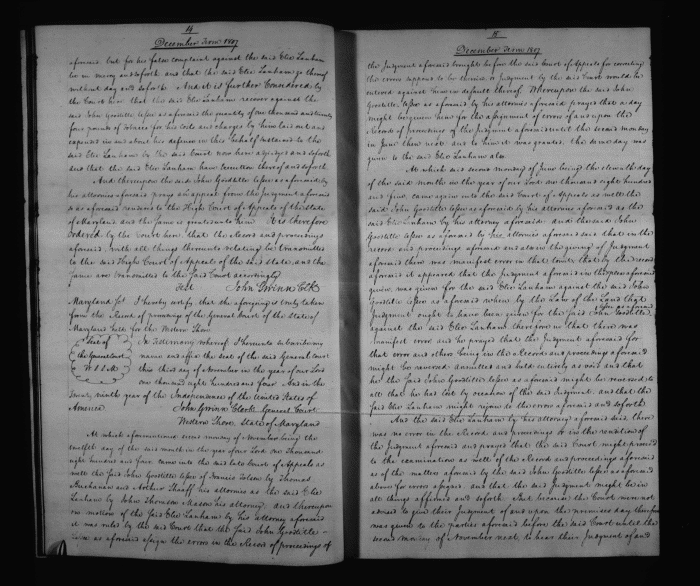 14
December Term 1807
aforesaid, but for his false complaint against the said Elie Lanham
be in mercy and soforth and that the said Elie Lanham go thereof
without day and soforth And it is further Considered by
the Court here that the said Elie Lanham recover against the
said John Goodtitle lessee as aforesaid the quantity of one thousand and twenty
four pounds of tobacco for his costs and charges by him laid out and
expended in and about his defence in this behalf sustained to the
said Elie Lanham by the said Court now here adjudged and soforth
and that the said Elie Lanham have execution thereof and soforth
And thereupon the said John Goodtitle lessee as aforesaid by
his attornies aforesaid prays an appeal from the Judgment aforesaid
so as aforesaid rendered to the High Court of Appeals of this State
of Maryland and the same is granted unto him It is therefore
ordered by the Court here that the Record and proceedings
aforesaid with all things thereunto relating be transmitted
to the said High Court of Appeals of the said state, and the
same are transmitted to the said Court accordingly
Test John Gwinn Clk
Maryland Sct I hereby certify that the aforegoing is truly taken
from the Record of proceedings of the General Court of the State of
Maryland held for the Western Shore
Seal of the General Court W S M
In testimony whereof I hereunto subscribe my
name and affix the seal of the said General Court
this third day of November in the year of our Lord
one thousand eight hundred and four And in the
twenty ninth year of the Independence of the United States of
America John Gwinn Clerk General Court
Western Shore State of Maryland
At which aforementioned second monday of November being the
twelfth day of the said month in the year of our Lord one thousand
eight hundred and four came into the said late Court of Appeals as
well the said John Goodtitle lessee of Francis Tolson by Thomas
Buchanan and Arthur Shaaff his attornies as the said Elie
Lanham by John Thomson Mason his attorney and thereupon
on motion of the said Elie Lanham by his attorney aforesaid
it was ruled by the said Court that the said John Goodtitle
lessee as aforesaid assign the errors in the Record of proceedings of
15
December Term 1807
the Judgment aforesaid brought before the said Court of Appeals for correcting
the errors supposed to be therein or Judgment by the said Court would be
entered against him in default thereof Whereupon the said John
Goodtitle lessee as aforesaid by his attornies aforesaid prayed that a day
might be given him for the assignment of errors of and upon the
Record of proceedings of the Judgment aforesaid until the second monday
in June then next and to him it was granted the same day was
given to the said Elie Lanham also
At which said second monday of June being the eleventh day
of the said month in the year of our Lord one thousand eight hundred
and five came again into the said Court of Appeals as well the
said John Goodtitle lessee as aforesaid by his attornies aforesaid as the
said Elie Lanham by his attorney aforesaid and the said John
Goodtitle lessee as aforesaid by his attornies aforesaid said that in the
record and proceedings aforesaid and also in the giving of Judgment
aforesaid there was manifest error in that to wit that by the record
aforesaid it appeared that the Judgment aforesaid in the plea aforesaid
given was given for the said Elie Lanham against the said John
Goodtitle lessee as aforesaid when by the Law of the Land that
Judgment ought to have been given for the said John Goodtitle, lessee as aforesaid
against the said Elie Lanham therefore in that there was
manifest error and he prayed that the Judgment aforesaid for
that error and others being in the Record and proceedings aforesaid
might be reversed annulled and held entirely as void and that
he the said John Goodtitle lessee as aforesaid might be restored to
all that he has lost by occasion of the said Judgment and that the
said Elie Lanham might rejoin to the errors aforesaid and soforth
And the said Elie Lanham by his attorney aforesaid said there
was no error in the Record and proceedings or in the rendition of
the Judgment aforesaid and prayed that the said Court might proceed
to the examination as well of the Record and proceedings aforesaid
as of the matters aforesaid by the said John Goodtitle lessee as aforesaid
above for errors assigned and that the said Judgment might be in
all things affirmed and soforth And because the Court were not
advised to give their Judgment of and upon the premises day therefore
was given to the parties aforesaid before the said Court until the
second monday of November next to hear their Judgment of and